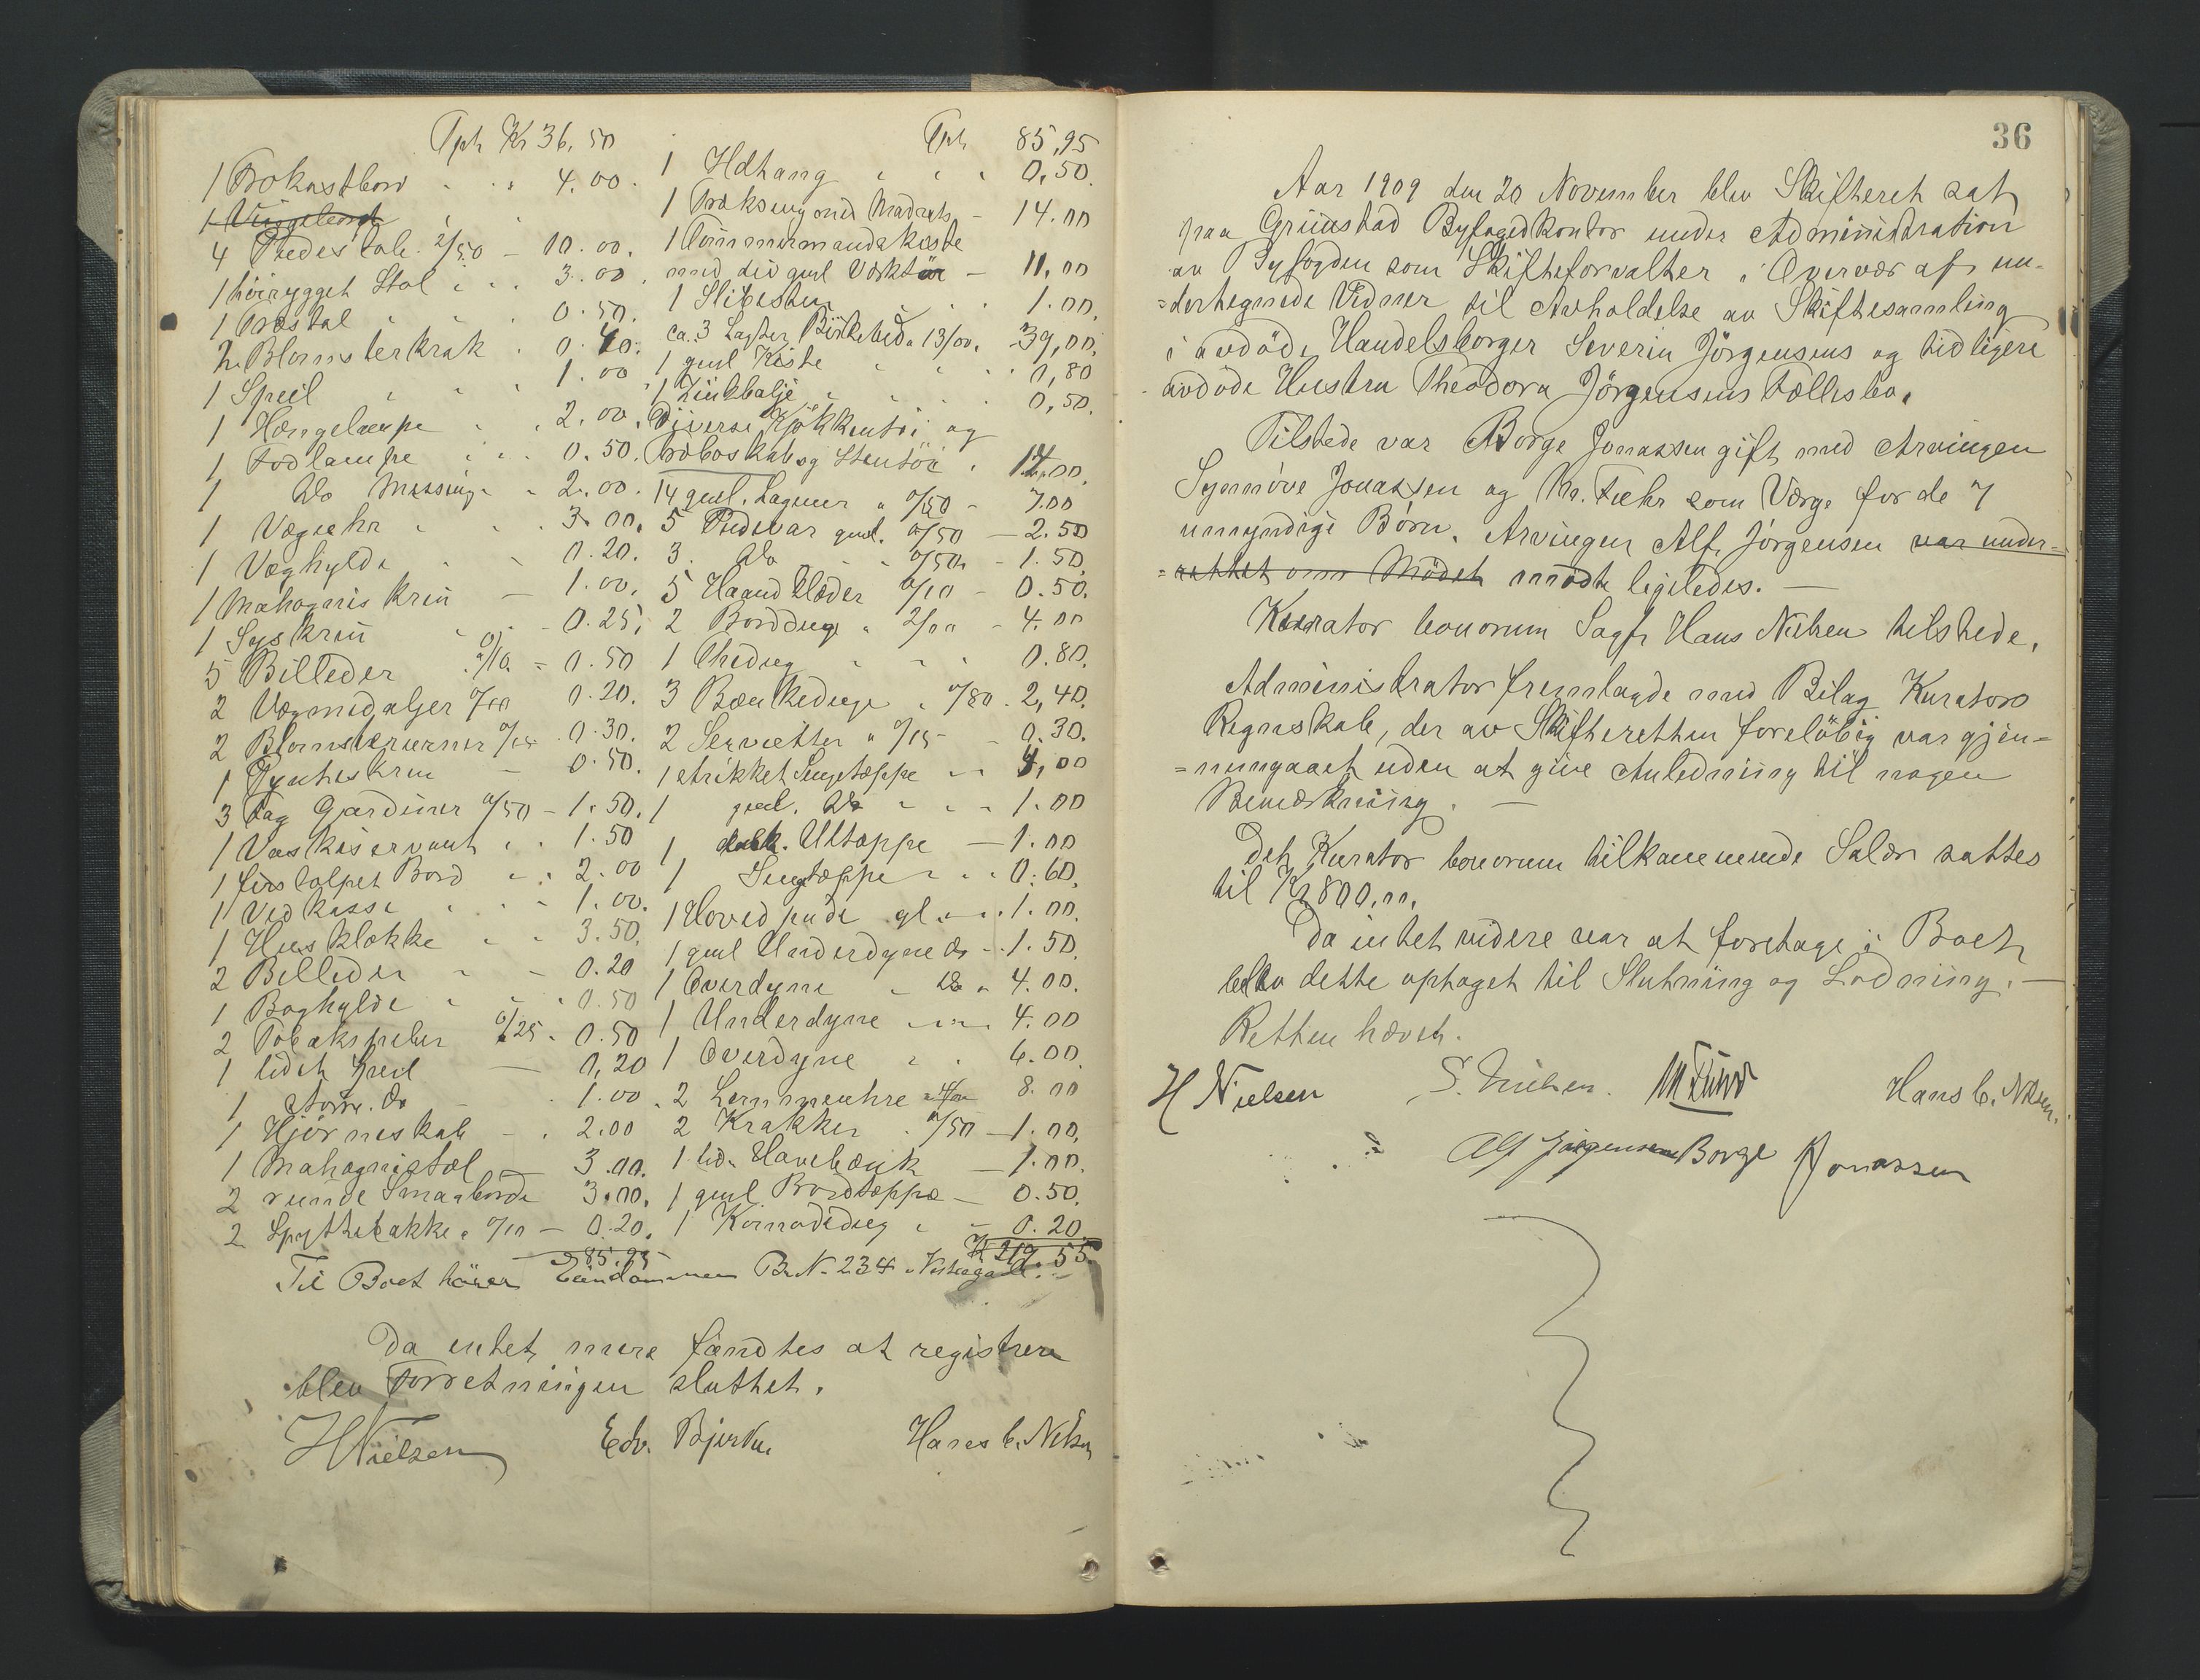 Tph Kr 36,50
1 Frokostbord " " 4.00.
1
4 Piedestale 2/50 - 10.00.
1 höirygget Stol " " 3.00
1 Træstol " " 0.50.
2 Blomsterkrak " 0.40.
1 Speil " " " 1.00
1 Hængelampe " " 2.00.
1 Fodlampe " " " 0.50.
1 Do Messing " " 2.00.
1 Vægeuhr " " " 3.00.
1 Væghylde " " 0.20.
1 Mahognis Krin — 1.00.
1 Syskrin " - 0.25.
5 Billeder 0/10. = 0.50
2 Vægmedaljer 0/10 0.20.
2 0/15 0.30.
1 Pynteskrin — 0.50.
3 Fag Gardiner 0/50 - 1.50.
1 Vaskiservant " " 1.50
1 firstolpet Bord " " 2.00
1 Vedkasse " " " 1.00.
1 Husklokke " " 3.50.
2 Billeder " - 0.20
1 Boghylde " " " 0.50
2 Tobakspiber 0/25. 0.50
1 lidet Speil — 0,20
1 større Do - . 1.00
1 Hjørneskab - . 2.00
1 Mahognistol — 3.00.
2 runde Smaaborde 3.00.
2 Spyttebakke a 0/10 — 0.20.
85.95
Tph 85,95
1 " " " 0,50.
1 Træksengmed Madrats - 14.00
1 Tømmermandskiste
med div gml Værktöi — 11,00
1 Slibesten " " 1.00.
ca. 3 Lagter Birkebed a 13/00. -39,00.
1 gml Kiste " " " 0,80
1 Zinkbalje " " " 0,50.
Diverse Kjøkkentøi og
Træboskab og Stentöi . 14.00.
14 gml. Lagener a 0/50 - 7.00
5 Pudevar gml. 0/50 — 2.50
3 Do " 0/50 - 1.50.
5 Haandklæder 0/10 - 0.50.
2 Borddug a 2/00 - 4.00
1 Thedug " " " 0.80.
3 Bænkeduge a 0/80. 2,40.
2 Servietter a 0/15 — 0.30.
1 strikket Sengetæppe " " 4,00
1 gml. Do " " " 1.00
1 Uldtæppe — 1.00
1 Sengtæppe " " " 0.60.
1 Hovedpude gl. " " 1.00.
1 gml Underdyne Do - 1.50.
1 Overdyne " Do " 4.00.
1 Underdyne " " " 4.00
1 Overdyne " " 6.00.
2 Lommeuhre a 4/00 8.00
2 Krakker a 0/50 — 1.00.
1 lid. Havebænk — 1.00.
1 gml Bordtæppe — 0.50.
1 Komodedug " - 0.20
K 219.55
Til Boet hører Eiendommen B.N. 234 i Vestregade.
Da intet mere fandtes at registrere
blev Forretningen sluttet.
HNielsen Edv. Bjerke Hans C. Nilsen
36
Aar 1909 den 20 November blev Skifteret sat
paa Grimstad Byfogedkontor under Administration
av Byfogden som Skifteforvalter i Overvær af un-
=dertegnede Vidner til Avholdelse av Skiftesamling
i avdöde Handelsborger Severin Jörgensens og tidligere
avdöde Hustru Theodora Jörgensens Fællesbo.
Tilstede var Børge Jonassen gift med Arvingen
Synnöve Jonassen og Kr. Fuhr som Værge for de 7
umyndige Børn. Arvingen Alf. Jørgensen var under-
=rettet om Mödet mödte ligeledes. —
Kurator bonorum Sagf. Hans Nielsen tilstede.
Administrator fremlagde med Bilag Kurators
Regnskab, der av Skifteretten foreløbig var gjen-
=nemgaaet uden at give Anledning til nogen
Bemærkning. —
Det Kurator bonorum tilkommende Salær sattes
til Kr 800,00.
Da intet videre var at foretage i Boet
blev dette optaget til Slutning og Lodning. —
Retten hævet.
H Nielsen S. Nielsen. Hans C. Nilsen.
Alf Jörgensen Borge Jonassen